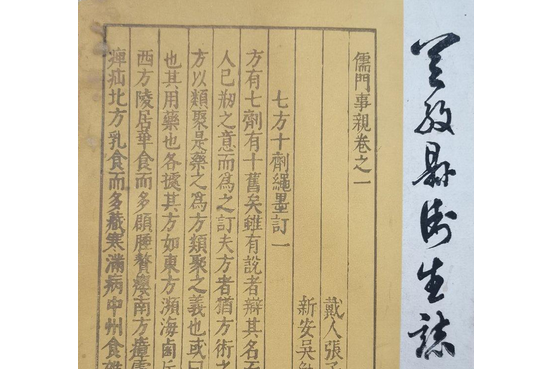 兰攷县衛生誌
儒門事親卷之一
戴人張子
新安吳勉
七方十劑繩墨訂一
方有七劑有十舊矣雖有說者辯其名而
人已韌之意而為之訂夫方者猶方術之
方以類聚是藥之為方類聚之義也或曰
也其用藥也各據其方如東方瀕海鹵斥
西方陵居華食而多䐜腫贅癭南方瘴霧
痺疝北方乳食而多藏寒滿病中州食雜